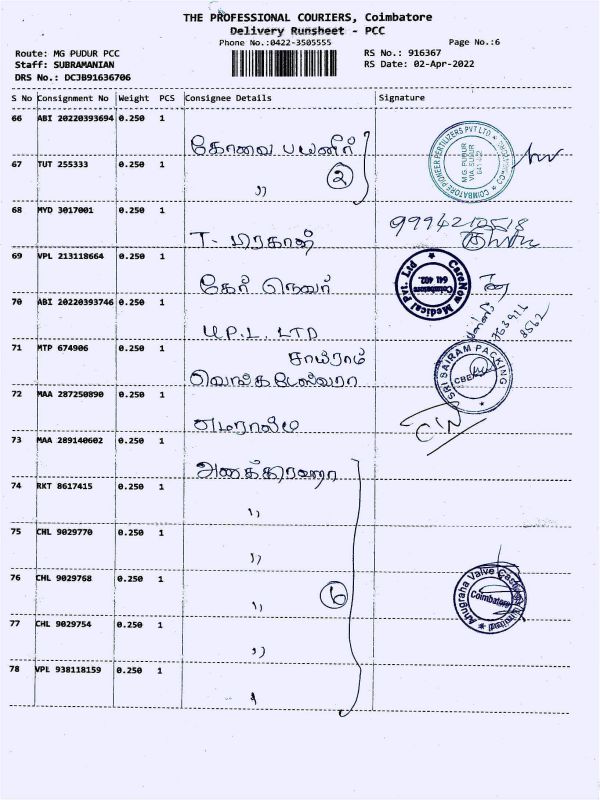 THE PROFESSIONAL COURIERS, Coimbatore
Delivery Runsheet - PCC
Phone No.:0422-3505555
Page No.:6
Route: MG PUDUR PCC
RS No.: 916367
Staff: SUBRAMANIAN
RS Date: 02-Apr-2022
DRS No.: DCJB91636706
S No Consignment No Weight PCS Consignee Details Signature
66 ABI 20220393694 0.250 1
கோவை பயனீர்
COIMBATORE PIONEER FERTILIZERS PVT LTD
M.G. PUDUR
VIA. SULUR
641 402
67 TUT 255333 0.250 1
,, 2
68 MYD 3017001 0.250 1
T. பிரகாஷ்
9994212518
69 VPL 213118664 0.250 1
கேர் நெவர்
CareNow Medical Pvt. Ltd
Coimbatore
641 402
70 ABI 20220393746 0.250 1
U.P.L. LTD
சாய்ராம்
71 MTP 674906 0.250 1
வெங்கடேஸ்வரா
SRI SAIRAM PACKING
CBE
72 MAA 287250890 0.250 1
73 MAA 289140602 0.250 1
74 RKT 8617415 0.250 1
,,
75 CHL 9029770 0.250 1
,,
76 CHL 9029768 0.250 1
,, 6
Anugraha Valve Castings Limited
Coimbatore
77 CHL 9029754 0.250 1
,,
78 VPL 938118159 0.250 1